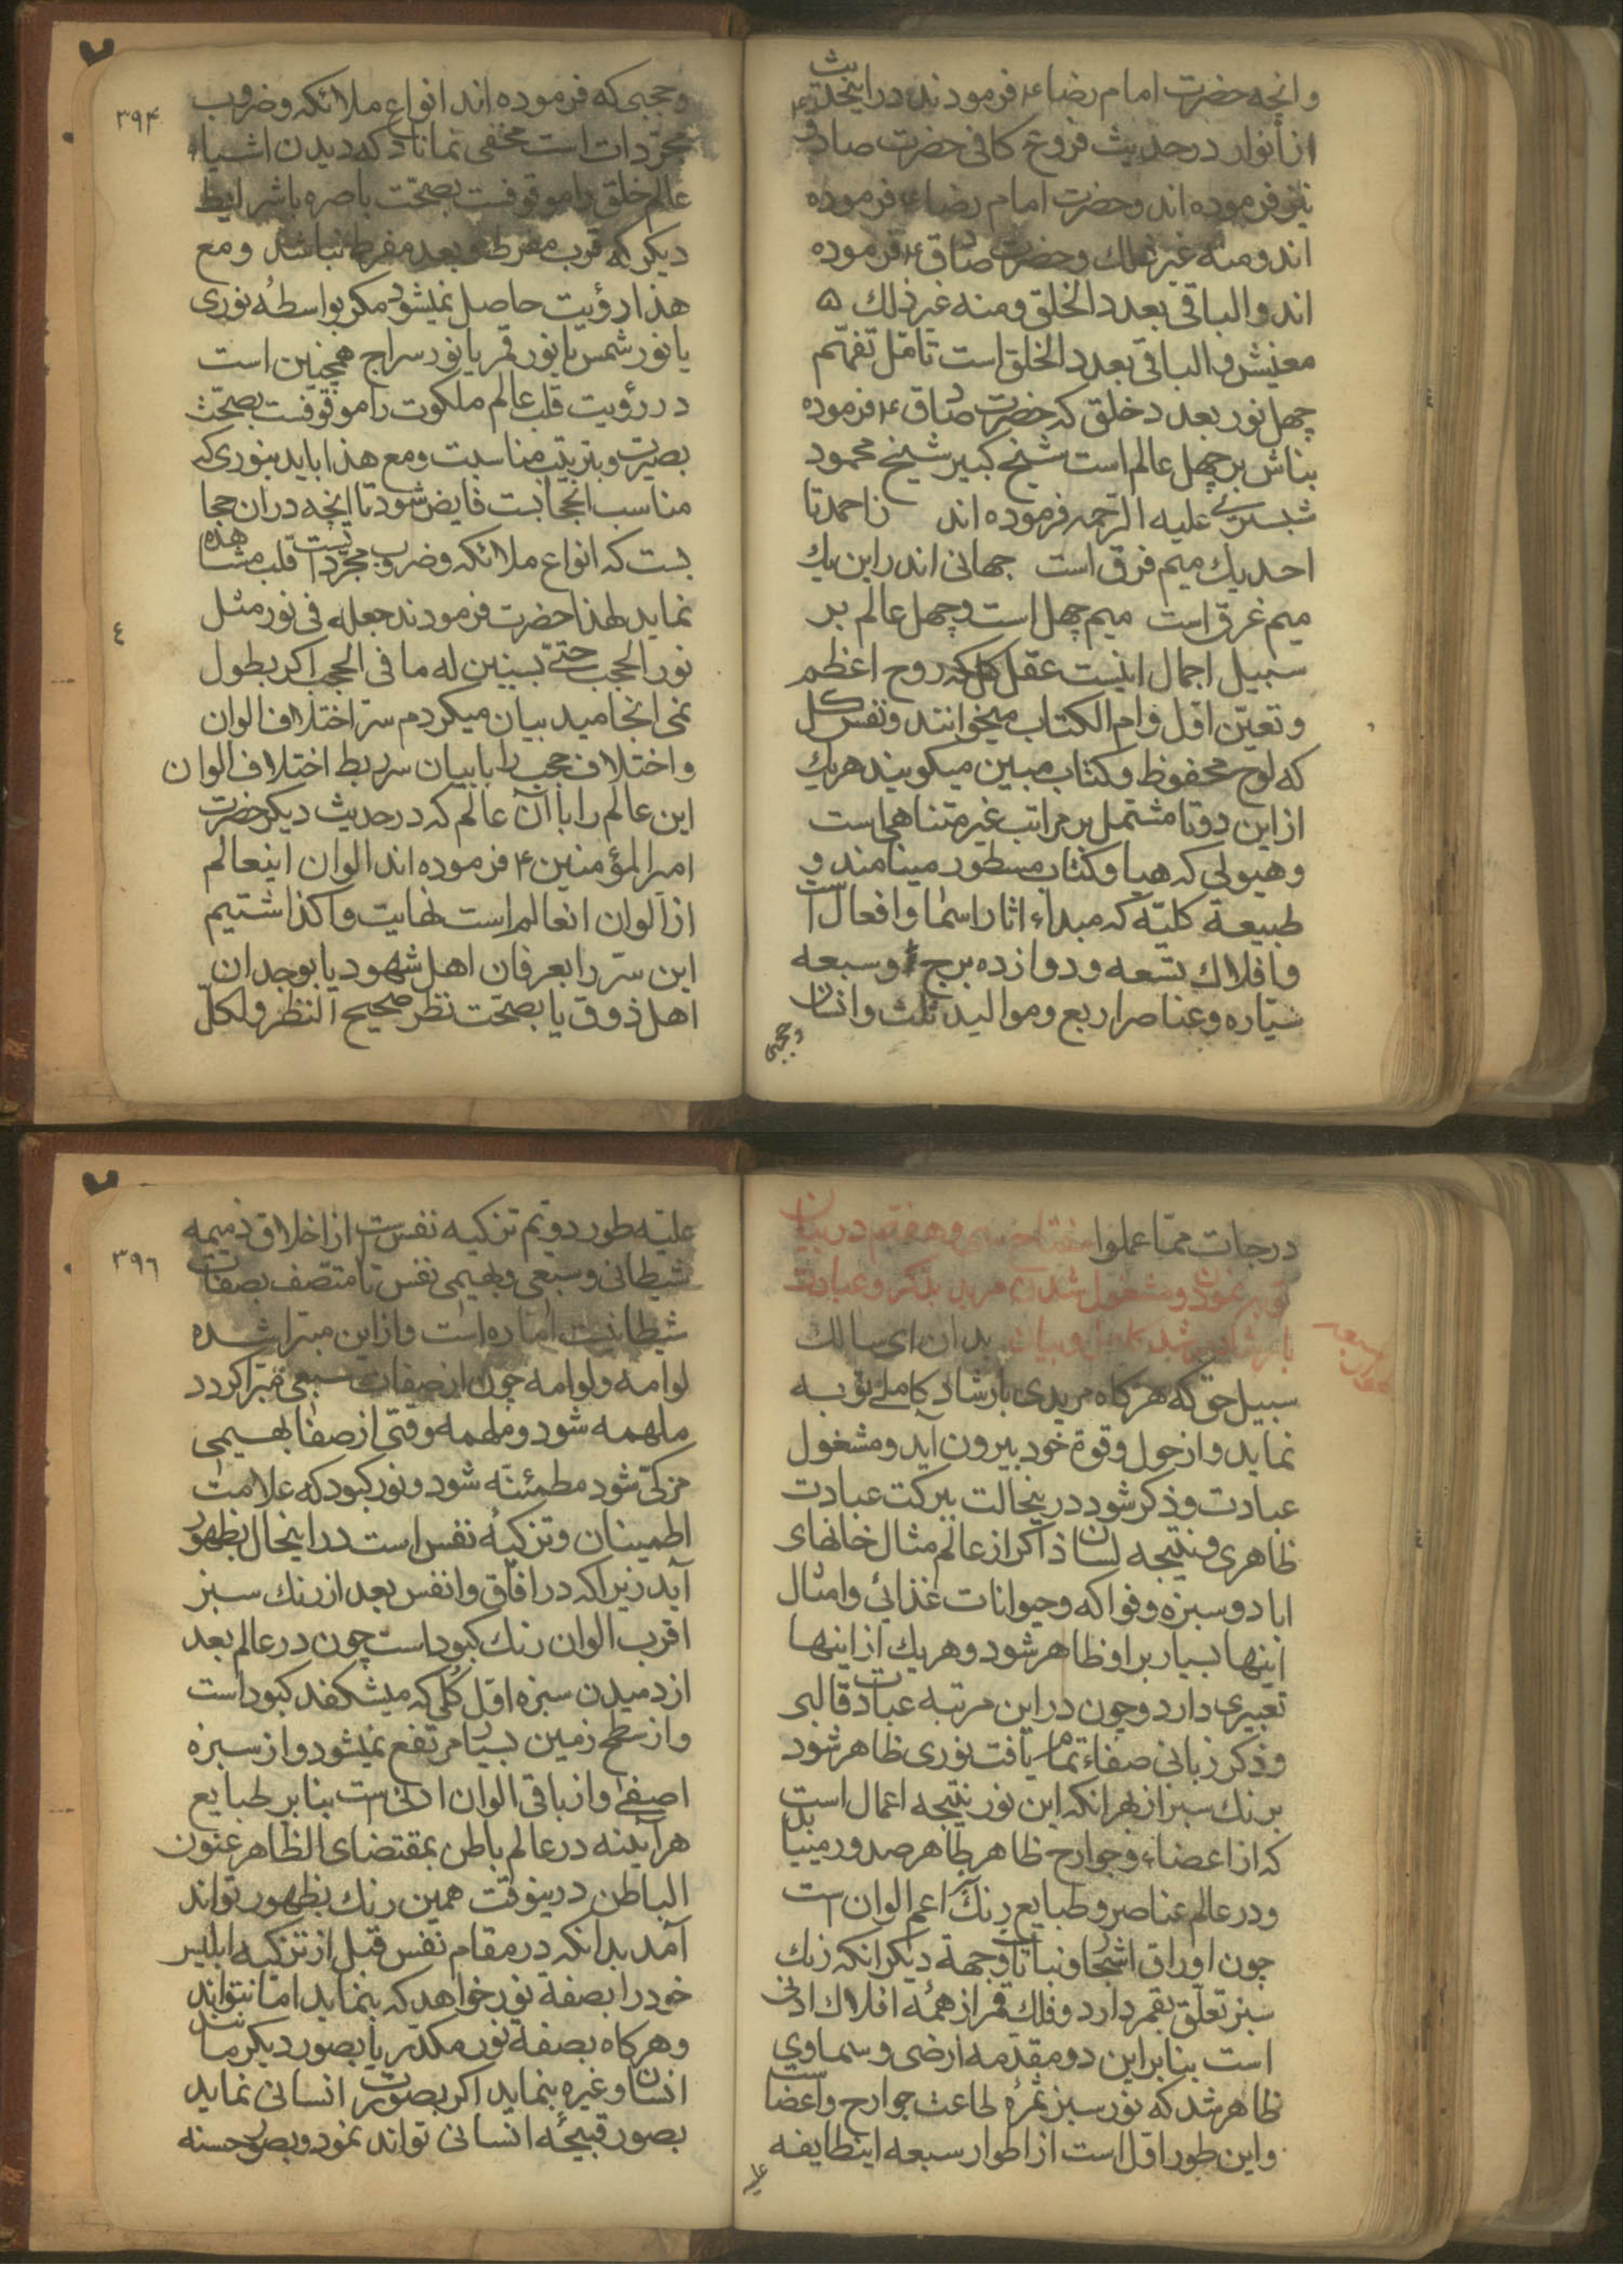 وانچه حضرت امام رضاء فرمودند در اینحدیث
از انوار در حدیث فروع کافی حضرت صادق
نیز فرموده اند و حضرت امام رضاء فرموده
اند ومنه غیر ذلك وحضرت صادق ۴ فرموده
اند والباقی بعدد الخلق ومنه غیر ذلك
معنیش والباقی بعدد الخلق است تامّل تفهّم
چهل نور بعدد خلق که حضرت صادق ۴ فرموده
بناش بر چهل عالم است شیخ کبیر شیخ محمود
شبستری علیه الرّحمه فرموده اند زاحمد تا
احد یك میم فرق است جهانی اندر این یك
میم غرق است میم چهل است وچهل عالم بر
سبیل اجمال اینست عقل کل که روح اعظم
وتعیّن اوّل وام الکتاب میخوانند ونفس کل
که لوح محفوظ وکتاب مبین میکویند هریك
از این دوتا مشتمل بر مراتب غیر متناهی است
وهیولی که هبا وکتاب مسطور مینامند و
طبیعة کلیّه که مبداء اثار اسما وافعال است
وافلاك تسعه ودوازده برج وسبعه
سیّاره وعناصر اربع وموالید ثلث وانسان
وحجبی
وحجبی که فرموده اند انواع ملائکه وضروب
۳۹۴
مجرّدات است مخفی نماناد که دیدن اشیاء
عالم خلق را موقوفست بصحّت باصره باشرایط
دیکر که قرب مفرط وبعد مفرط نباشد ومع
هذا رؤیت حاصل نمیشود مکر بواسطهٔ نوری
یا نور شمس یا نور قمر یا نور سراج همچنین است
در رؤیت قلب عالم ملکوت را موقوفست بصحّت
بصیرت وبترتیب مناسبت ومع هذا باید بنوری که
مناسب انحجابست فایض شود تا انچه در ان حجا
بست که انواع ملائکه وضروب مجرّداتست قلب مشاهده
نماید لهذا حضرت فرمودند جعله فی نور مثل
٤
نور الحجب حتّی یستبین له ما فی الحجب اکر بطول
نمی انجامید بیان میکردم سرّ اختلاف الوان
واختلاف حجب را با بیان سرّ ربط اختلاف الوان
این عالم را با آن عالم که در حدیث دیکر حضرت
امیرالمؤمنین ۴ فرموده اند الوان اینعالم
از الوان انعالم است نهایت واکذاشتیم
این سرّ را بعرفان اهل شهود یا بوجدان
اهل ذوق یا بصحّت نظر صحیح النّظر ولکلّ
درجات ممّا عملوا مفتاح سی وهفتم در بیان
توبه نمودن ومشغول شدن مرید بذکر وعبادت
بارشاد مرشد کامل وبیان بدان ای سالك
سبیل حق که هرکاه مریدی بارشاد کاملی توبه
نماید واز حول وقوة خود بیرون آید ومشغول
عبادت وذکر شود درینحالت ببرکت عبادت
ظاهری ونتیجه لسان ذاکر از عالم مثال خانهای
اباد وسبزه وفواکه وحیوانات غذائی وامثال
اینها بسیار بر او ظاهر شود وهریك از اینها
تعبیری دارد وچون در این مرتبه عبادت قالبی
وذکر زبانی صفاء تمام یافت نوری ظاهر شود
برنك سبز از بهر انکه این نور نتیجه اعمال است
که از اعضاء وجوارح ظاهر بظاهر صدور مییابد
ودر عالم عناصر وطبایع رنك اعم الوان است
چون اوراق اشجار ونباتات وجهة دیکر انکه رنك
سبز تعلّق بقمر دارد وفلك قمر از همهٔ افلاك ادنی
است بنابر این دو مقدّمه ارضی وسماوی
ظاهر شد که نور سبز ثمرهٔ طاعت جوارح واعضاست
واین طور اوّل است از اطوار سبعه اینطایفه
علیّه
علیّه طور دویم تزکیه نفس است از اخلاق ذمیمه
۳۹٦
شیطانی وسبعی وبهیمی نفس تا متّصف بصفات
شیطانیت امّاره است واز این مبرّا شده
لوامه ولوامه چون از صفات سبعی مبرّا کردد
ملهمه شود وملهمه وقتی از صفات بهیمی
مزکّی شود مطمئنّه شود ونور کبود که علامت
اطمینان وتزکیهٔ نفس است در اینحال بظهور
آید زیرا که در افاق وانفس بعد از رنك سبز
اقرب الوان رنك کبود است چون در عالم بعد
از دمیدن سبزه اوّل کلی که میشکفد کبود است
واز سطح زمین بسیار مرتفع نمیشود واز سبزه
اصفی واز باقی الوان ادنی است بنابر طبایع
هرآینه در عالم باطن بمقتضای الظاهر عنوان
الباطن درینوقت همین رنك بظهور تواند
آمد بدانکه در مقام نفس قبل از تزکیه ابلیس
خود را بصفة نور خواهد که بنماید امّا نتواند
وهرکاه بصفة نور مکدّر یا بصور دیکر مانند
انسان وغیره بنماید اکر بصورت انسانی نماید
بصور قبیحهٔ انسانی تواند نمود وبصور حسنه